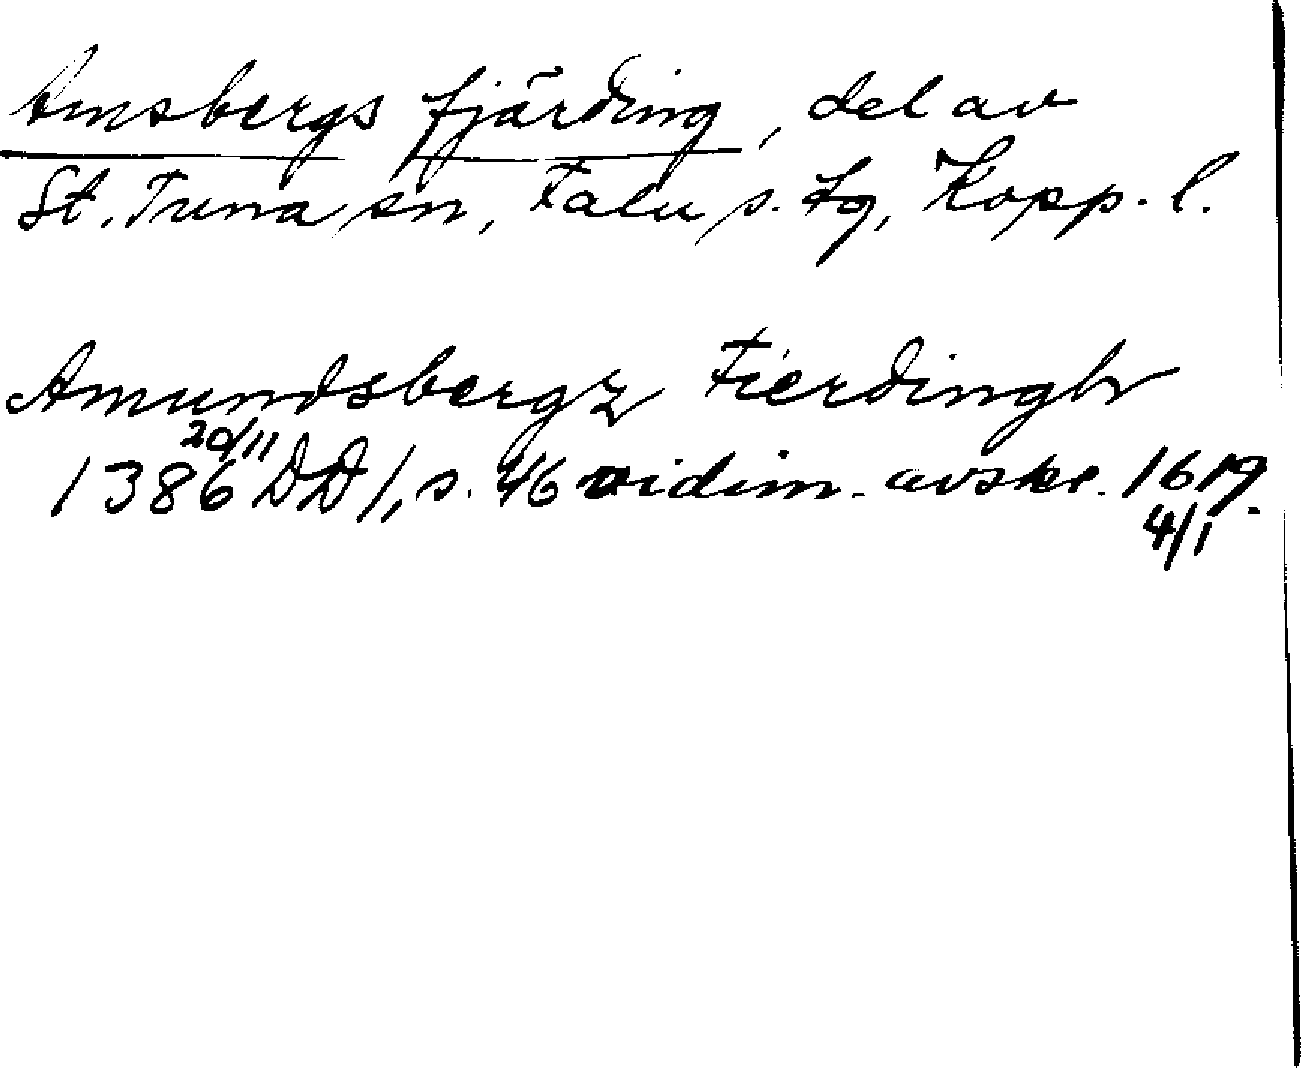 Amsbergs fjärding, del av
St. Tuna sn, Falu s. fg, Kopp. l.
Amundsbergz Fierdingh
20/11
1386 DD 1, s. 46 vidim. avskr. 1619.
4/1